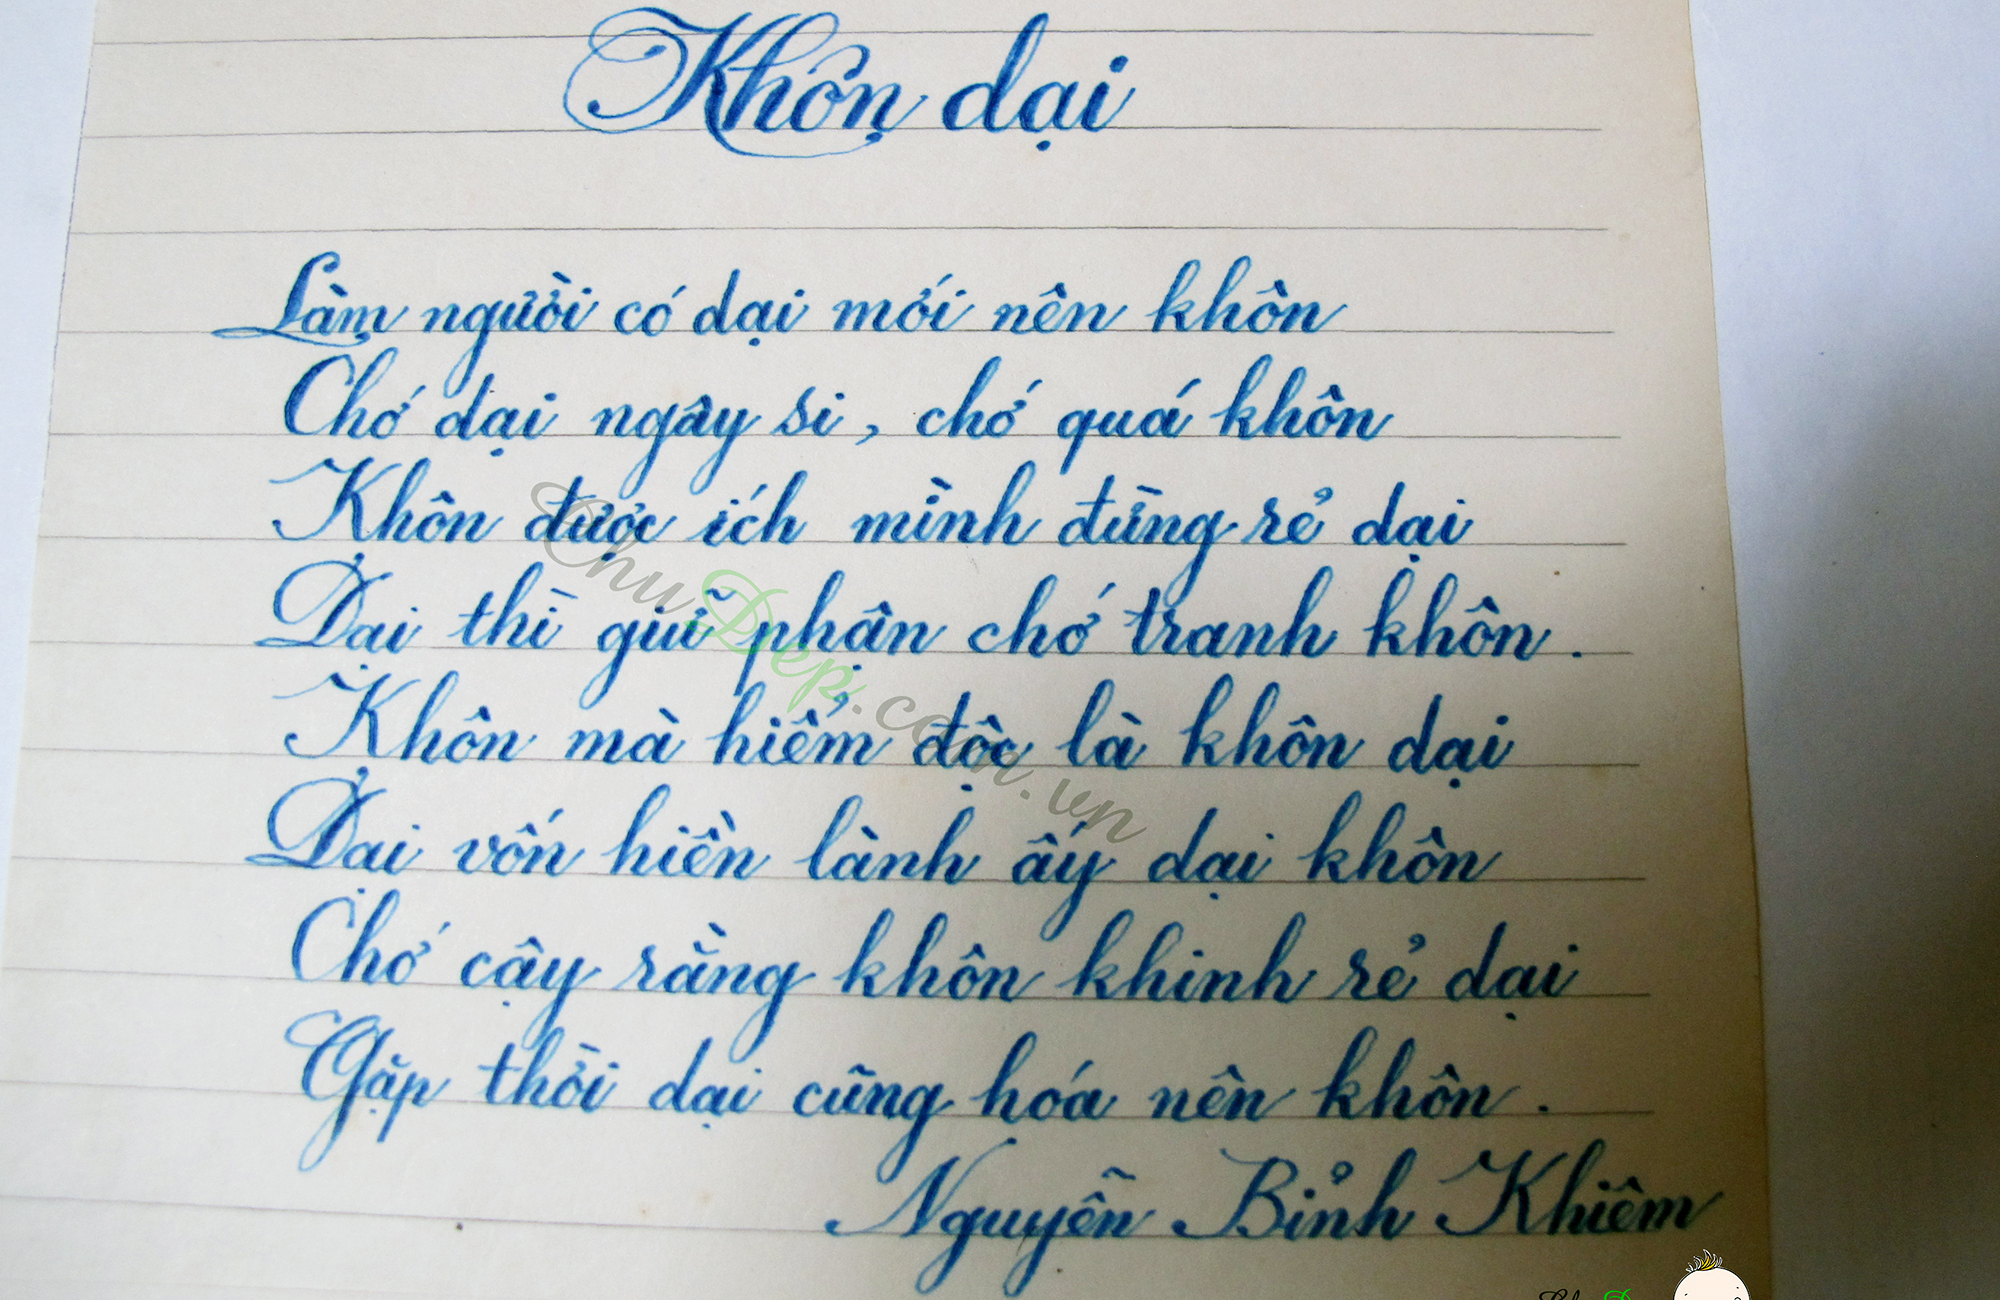 Khôn dại
Làm người có dại mới nên khôn
Chớ dại ngây si, chớ quá khôn
Khôn được ích mình đừng rẻ dại
Dại thì giữ phận chớ tranh khôn.
Khôn mà hiểm độc là khôn dại
Dại vốn hiền lành ấy dại khôn
Chớ cậy rằng khôn khinh rẻ dại
Gặp thời dại cũng hóa nên khôn.
Nguyễn Bỉnh Khiêm
ChuDep.com.vn